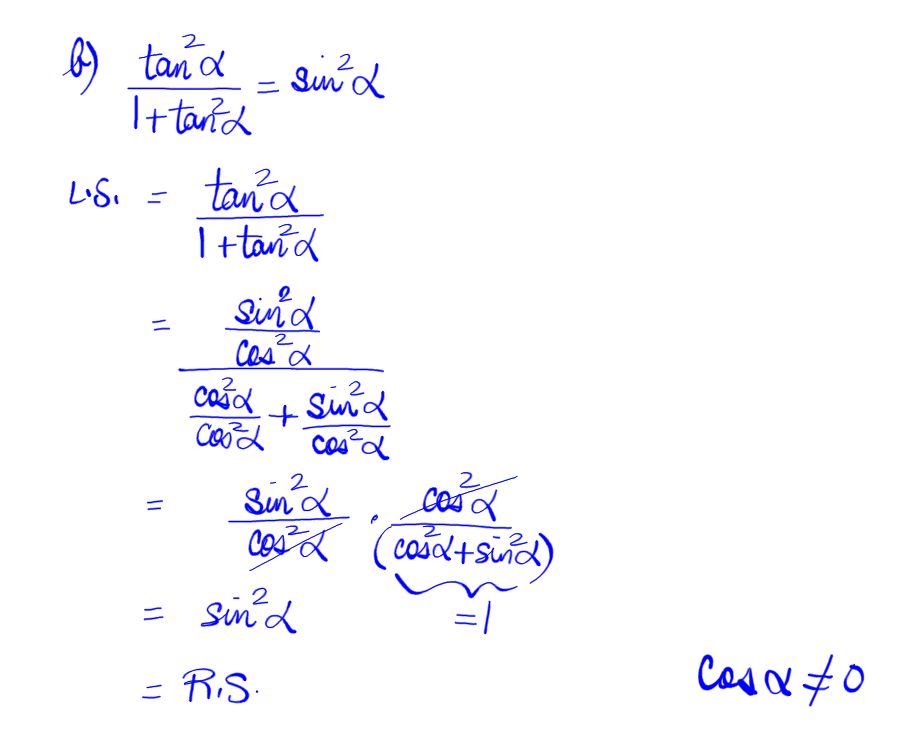 b) tan²α / 1+tan²α = sin²α
L.S. = tan²α / 1+tan²α
= sin²α / cos²α / cos²α / cos²α + sin²α / cos²α
= sin²α / cos²α · cos²α / (cos²α+sin²α)
= sin²α =1
= R.S. cos α ≠ 0